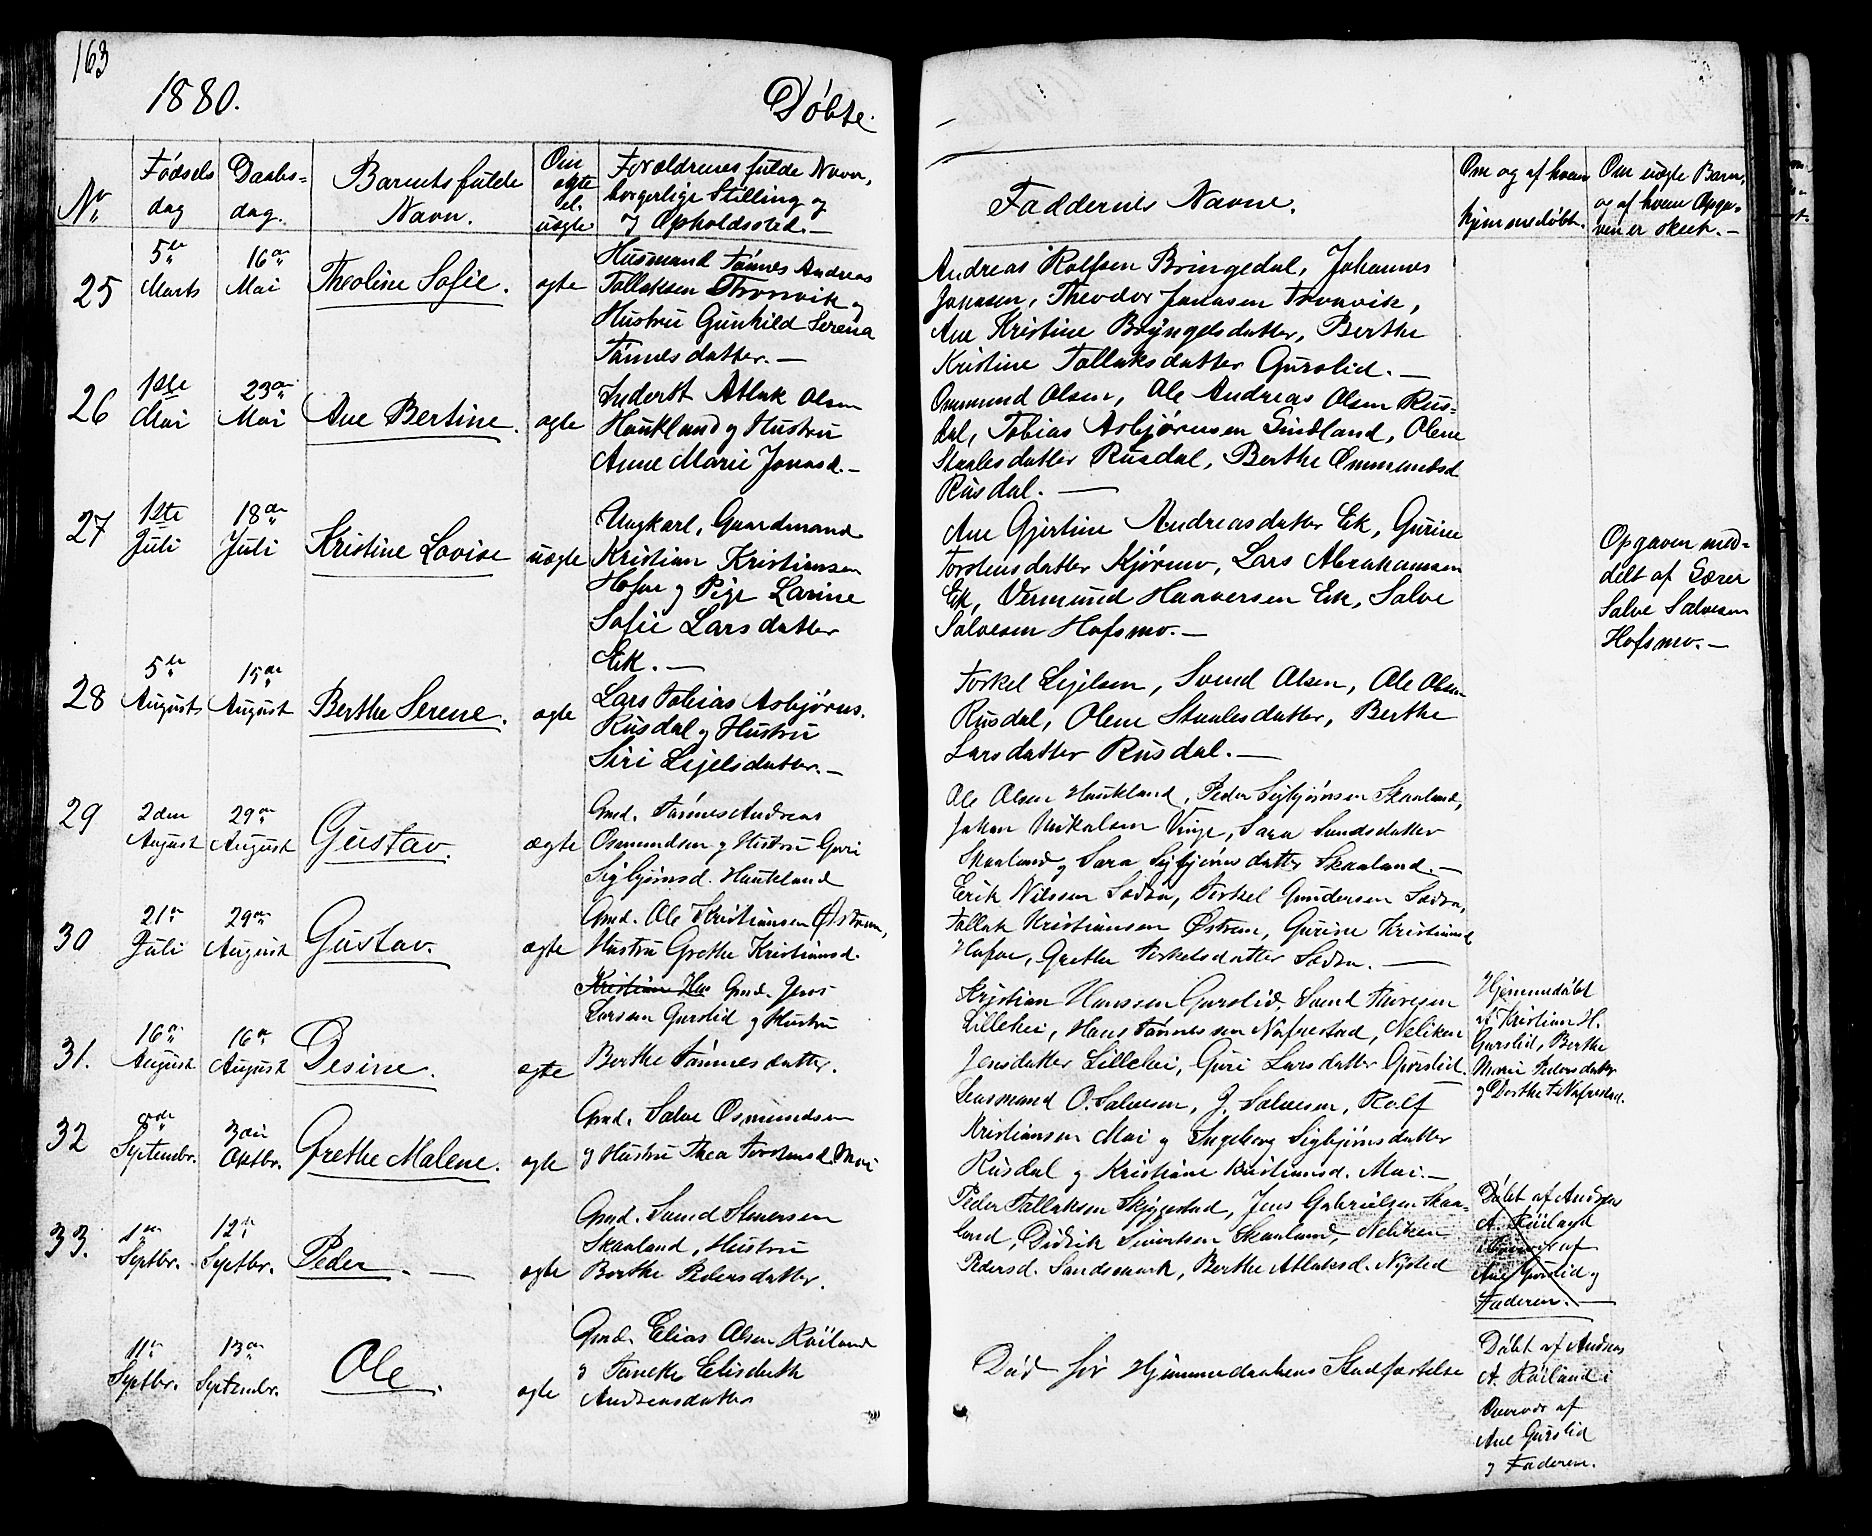 163
1880.
Døbte.
No
Fødsels
dag
Daabs=
dag.
Barnets fulde
Navn.
Om
ægte
el.
uægte
Forældrenes fulde Navn,
borgerlige Stilling og
og Opholdssted.—
Faddernes Navne.
Om og af hvem
hjemmedøbt.
Om uægte Barn,
og af hvem Opga-
ven er skeet.—
25
5te
Marts
16de
Mai
Theoline Sofie.
ægte
Husmand Tønnes Andreas
Tollaksen Tronvik og
Hustru Gunhild Serena
Tønnesdatter.—
Andreas Rolfsen Bringedal, Johannes
Jonasen, Theodor Jonasen Tronvik,
Ane Kristine Bryngelsdatter, Berthe
Kristine Tollaksdatter Gurslid.—
26
1ste
Mai
23de
Mai
Ane Bertine.
ægte
Inderst Atlak Olsen
Haukland og Hustru
Anne Marie Jonasd.—
Ommund Olsen, Ole Andreas Olsen Rus-
dal, Tobias Asbjørnsen Sindland, Olene
Staalesdatter Rusdal, Berthe Ommundsd
Rusdal.—
27
1ste
Juli
18de
Juli
Kristine Lovise
uægte
Ungkarl, Gaardmand
Kristian Kristiansen
Hofne og Pige Larine
Sofie Larsdatter
Eik.—
Ane Gjertine Andreasdatter Eik, Gurine
Torstensdatter Kjørmo, Lars Abrahamsen
Eik, Vermund Haaversen Eik, Salve
Salvesen Hofsmo.—
Opgaven med-
delt af Lærer
Salve Salvesen
Hofsmo.—
28
5te
August
15de
August
Berthe Serene.
ægte
Lars Tobias Asbjørns.
Rusdal og Hustru
Siri Eijelsdatter.—
Torkel Eijelsen, Svend Olsen, Ole Olsen
Rusdal, Olene Staalesdatter, Berthe
Larsdatter Rusdal.—
29
2den
August
29de
August
Gustav.
ægte
Gmd. Tønnes Andreas
Osmundsen og Hustru Guri
Sigbjørnsd. Haukland
Ole Olsen Haukland, Peder Sigbjørnsen Skaaland,
Johan Mikalsen Vinje, Sara Svendsdatter
Skaaland og Sara Sigbjørnsdatter Skaaland.—
30
21de
Juli
29de
August
Gustav.
ægte
Gmd. Ole Kristiansen Østrem,
Hustru Grethe Kristiansd.
Erik Nilssen Sædra, Torkel Gundersen Sædra,
Tollak Kristiansen Østrem, Gurine Kristiansd
Hofne, Grethe Torkelsdatter Sædra.—
31.
16de
August
16de
August
Desine.
ægte
Kristian Han Gmd. Jens
Larsen Gurslid og Hustru
Berthe Tønnesdatter.
Kristian Hanssen Gurslid, Svend Thoresen
Lillehei, Hans Tønnessen Nøfrestad, Neliken
Jensdatter Lillehei, Guri Larsdatter Gurslid.
Hjemmedøbt
af Kristian H.
Gurslid, Berthe
Marie Pedersdatter
og Dorthe T. Nøfrestad.
32
Septembr.
3die
Oktbr.
Grethe Malene.
ægte
Gmd. Salve Osmundsen
og Hustru Thea Torstensd. Moi
O. Salvesen, J. Salvesen, Rolf
Kristiansen Moi og Ingeborg Sigbjørnsdatter
Rusdal og Kristiane Kristiansd. Moi.—
33.
1ste
Septbr.
12te
Septbr.
Peder.—
ægte
Gmd. Svend Simersen
Skaaland, Hustru
Berthe Pedersdatter.
Peder Tollaksen Skyggestad, Jens Gabrielsen Skaa-
land, Didrik Sivertsen Skaaland, Neliken
Pedersd. Sandsmark, Berthe Atlaksd. Nysted
Døbt af Andreas
A. Røiland
i Overvær af
Ane Gurslid og
Faderen.—
11te
Septbr.
13de
Septembr.
Ole.
ægte
Gmd. Elias Olsen Røiland
og Taneke Elisabeth
Andreasdatter
Død før Hjemmedaabens Stadfæstelse
Døbt af Andreas
A. Røiland i
Overvær af
Ane Gurslid
og Faderen.